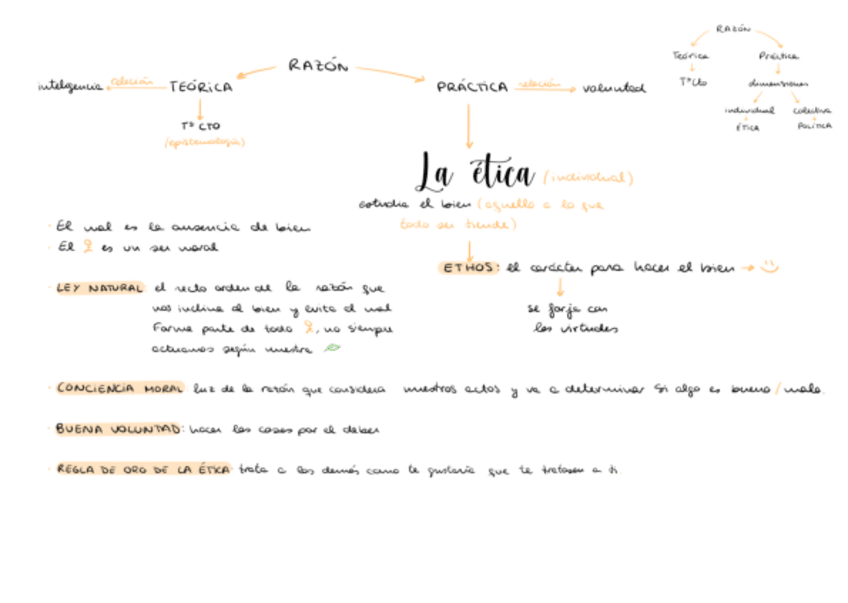 RAZÓN
inteligencia relación TEÓRICA
Tª CTO
(epistemología)
PRÁCTICA relación voluntad
RAZÓN
Teórica Práctica
TªCto dimensiones
individual colectiva
ÉTICA POLÍTICA
La ética (individual)
estudia el bien (aquello a lo que
todo ser tiende)
· El mal es la ausencia de bien
· El es un ser moral
ETHOS: el carácter para hacer el bien
se forja con
las virtudes
· LEY NATURAL el recto orden de la razón que
nos inclina al bien y evita el mal
Forma parte de todo , no siempre
actuamos según nuestra
· CONCIENCIA MORAL luz de la razón que considera nuestros actos y va a determinar si algo es bueno/malo.
· BUENA VOLUNTAD: hacer las cosas por el deber
· REGLA DE ORO DE LA ÉTICA trata a los demás como te gustaría que te tratasen a ti